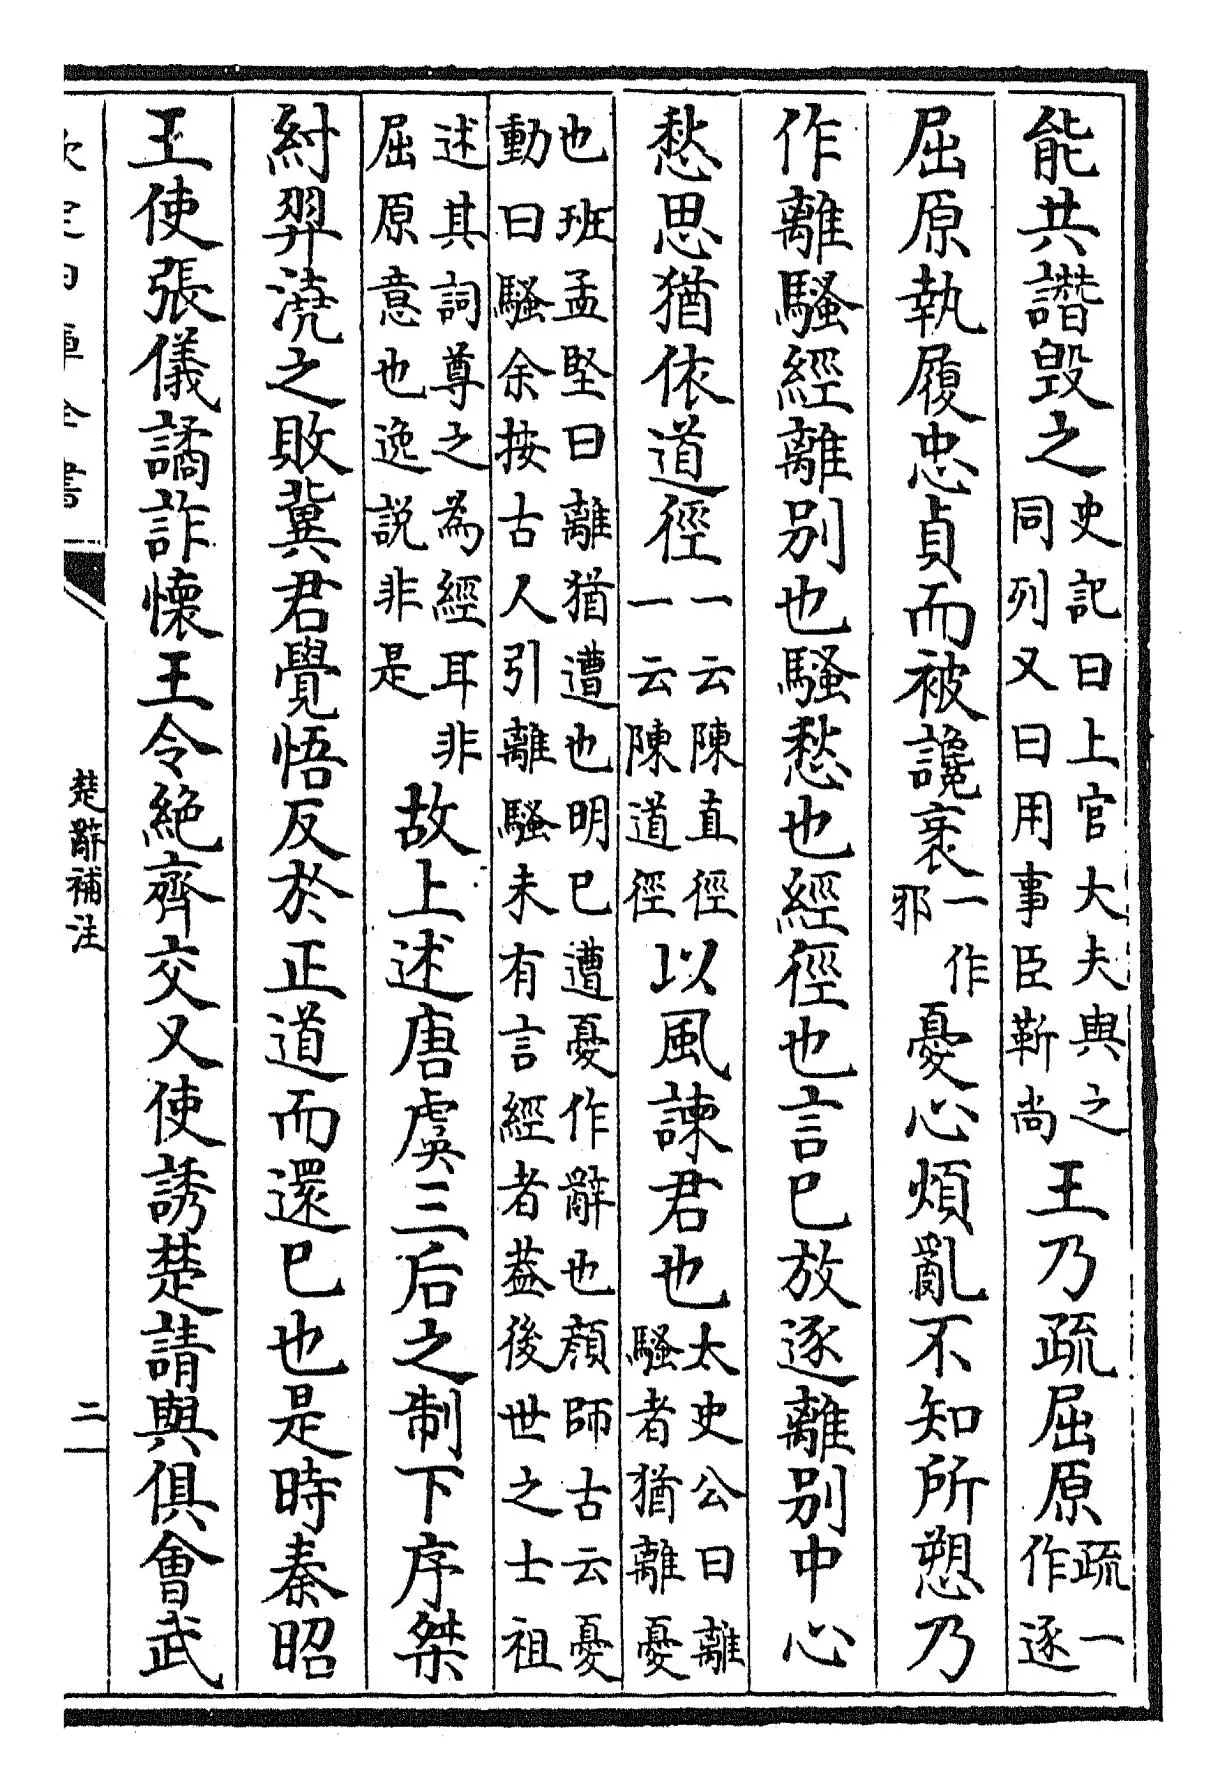 能共譖毁之史記曰上官大夫與之同列又曰用事臣靳尚王乃疏屈原疏一作逐
屈原執履忠貞而被讒衺一作邪憂心煩亂不知所愬乃
作離騷經離别也騷愁也經徑也言已放逐離别中心
愁思猶依道徑一云陳直徑一云陳道徑以風諫君也太史公曰離騷者猶離憂
也班孟堅曰離猶遭也明已遭憂作辭也顔師古云憂動曰騷余按古人引離騷未有言經者葢後世之士祖
述其詞尊之為經耳非屈原意也逸説非是故上述唐虞三后之制下序桀
紂羿澆之敗冀君覺悟反於正道而還已也是時秦昭
王使張儀譎詐懷王令絶齊交又使誘楚請與俱會武
欽定四庫全書
楚辭補注
二